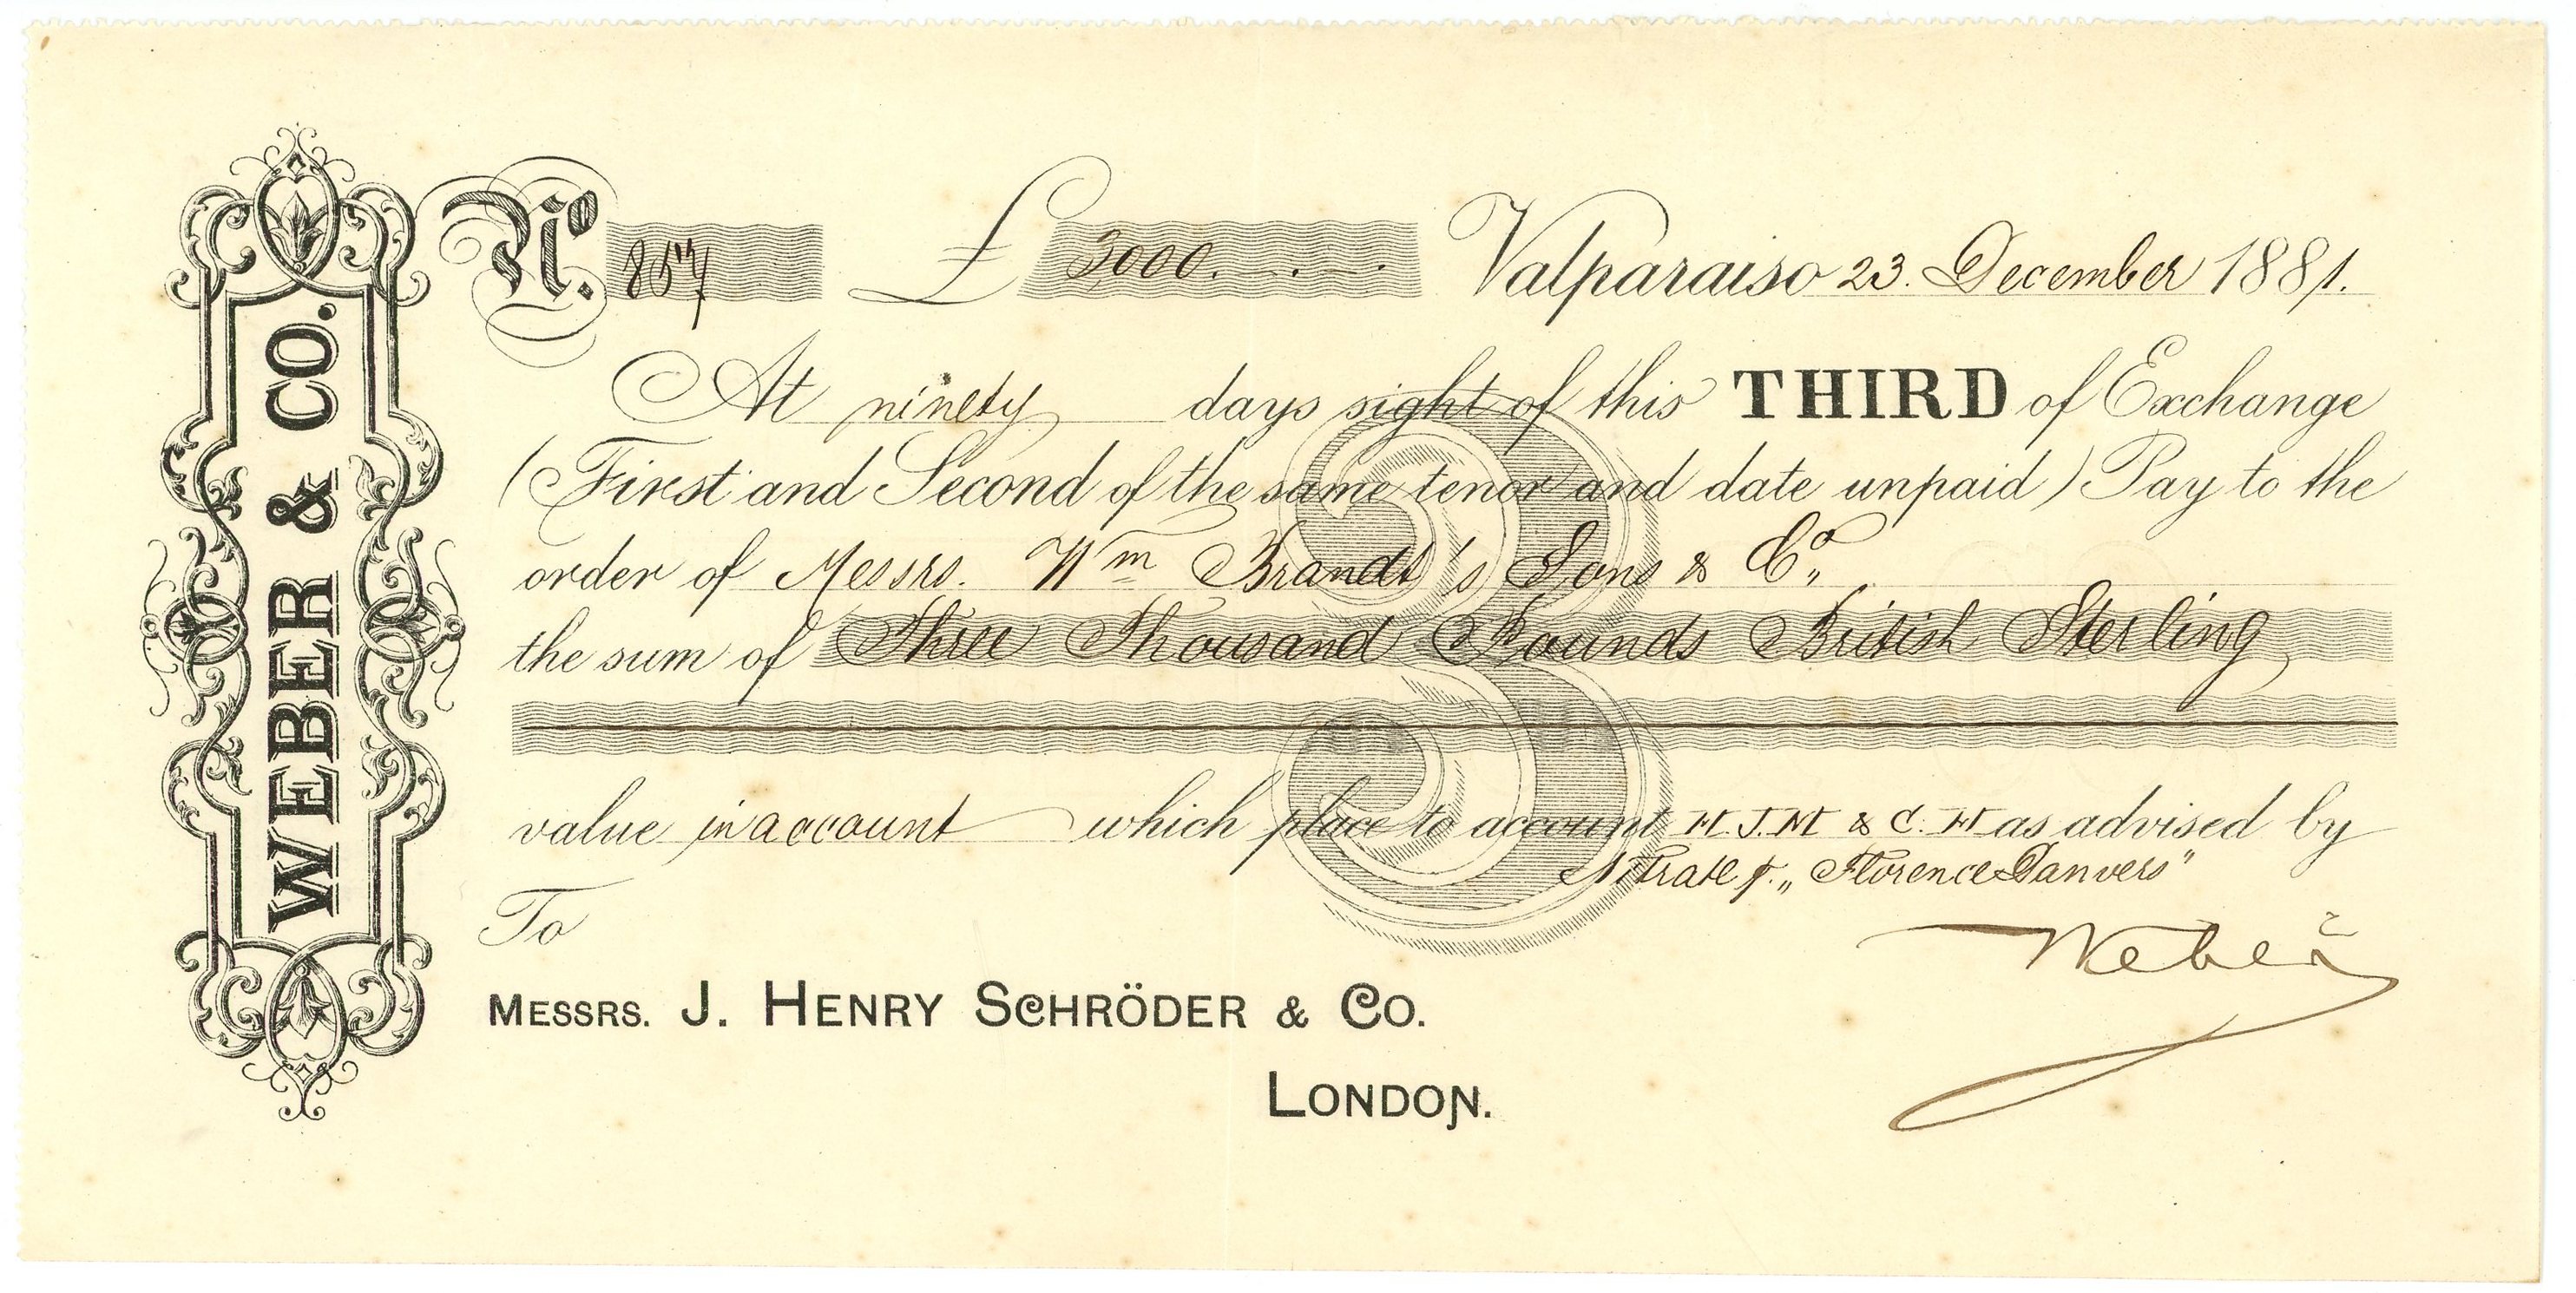 WEBER & CO.
No. 857 £ 3000. Valparaiso 23. December 1881.
At ninety days sight of this THIRD of Exchange
(First and Second of the same tenor and date unpaid) Pay to the
order of Messrs. Wm Brandt's Sons & Co,,
the sum of Three Thousand Pounds British Sterling
3
value in account which place to account H.J.M & C. H as advised by
Nitrate p. „Florence Danvers"
To
Weber
MESSRS. J. HENRY SCHRÖDER & CO.
LONDON.